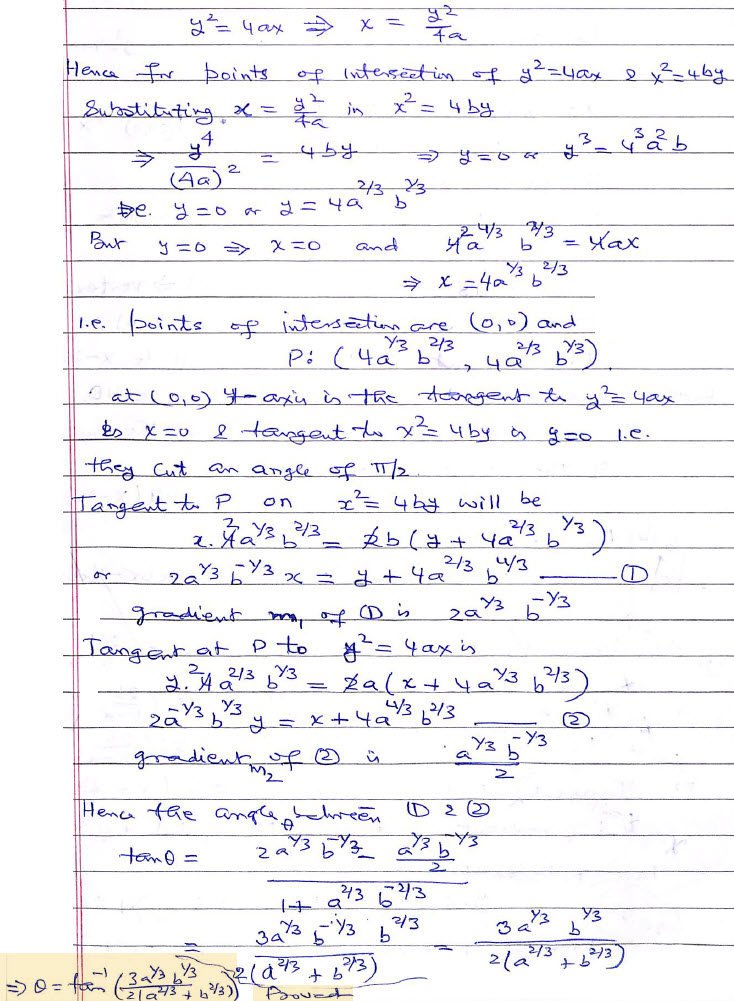 y² = 4ax ⇒ x = y²/4a
Hence for points of intersection of y²=4ax & x²=4by
Substituting x = y²/4a in x² = 4by
⇒ y⁴/(4a)² = 4by ⇒ y=0 or y³ = 4³a²b
i.e. y=0 or y = 4a^2/3 b^1/3
But y=0 ⇒ x=0 and 4²a^4/3 b^2/3 = 4ax
⇒ x = 4a^1/3 b^2/3
i.e. points of intersection are (0,0) and
P: (4a^1/3 b^2/3, 4a^2/3 b^1/3)
at (0,0) y-axis is the tangent to y²=4ax
is x=0 & tangent to x²=4by is y=0 i.e.
they cut an angle of π/2
Tangent to P on x²=4by will be
x.4²a^1/3 b^2/3 = 2b(y + 4a^2/3 b^1/3)
or 2a^1/3 b^-1/3 x = y + 4a^2/3 b^4/3 —— ①
gradient m₁ of ① is 2a^1/3 b^-1/3
Tangent at P to y² = 4ax is
y.4²a^2/3 b^1/3 = 2a(x + 4a^1/3 b^2/3)
2a^-1/3 b^1/3 y = x + 4a^4/3 b^2/3 —— ②
gradient m₂ of ② is a^1/3 b^-1/3/2
Hence the angle θ between ① & ②
tanθ = (2a^1/3 b^-1/3 - a^1/3 b^-1/3/2)/(1 + a^2/3 b^-2/3)
= 3a^1/3 b^-1/3 b^2/3/2(a^2/3 + b^2/3) = 3a^1/3 b^1/3/2(a^2/3 + b^2/3)
⇒ θ = tan⁻¹(3a^1/3 b^1/3/2(a^2/3 + b^2/3)) Proved